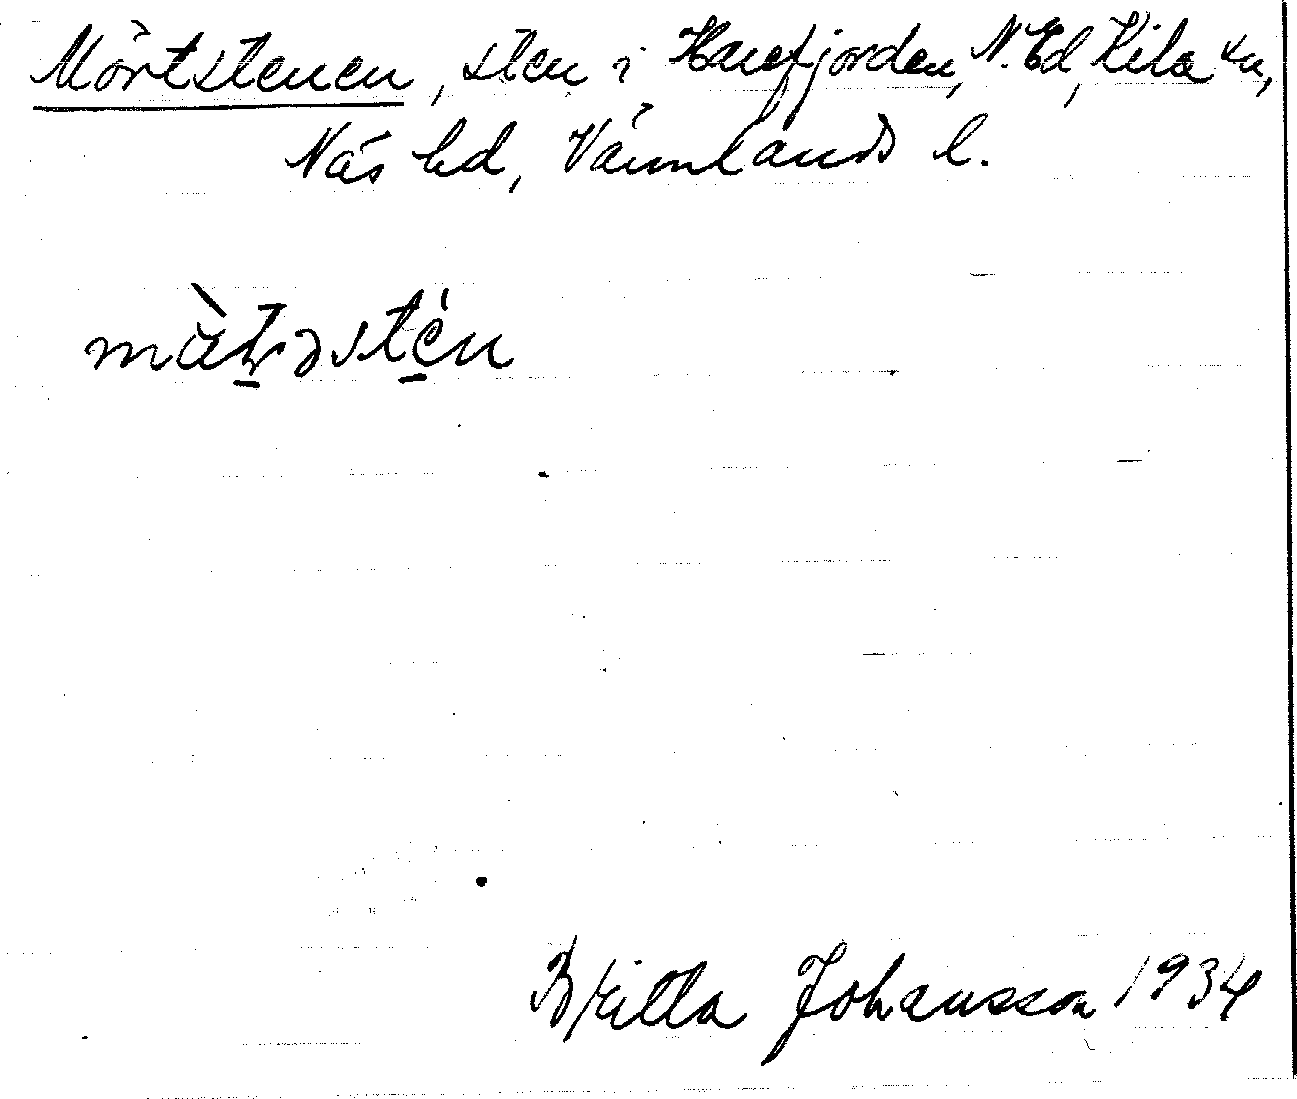 Mörtstenen, sten i Harefjorden, N. Ed, Kila sn,
Näs hd, Värmlands l.
Britta Johansson 1934